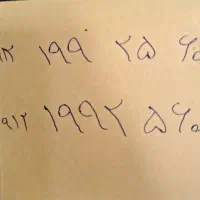 ۱۲ ۱۹۹ ۲۵ ۶۰
۹۱۲ ۱۹۹۲ ۵۶۰